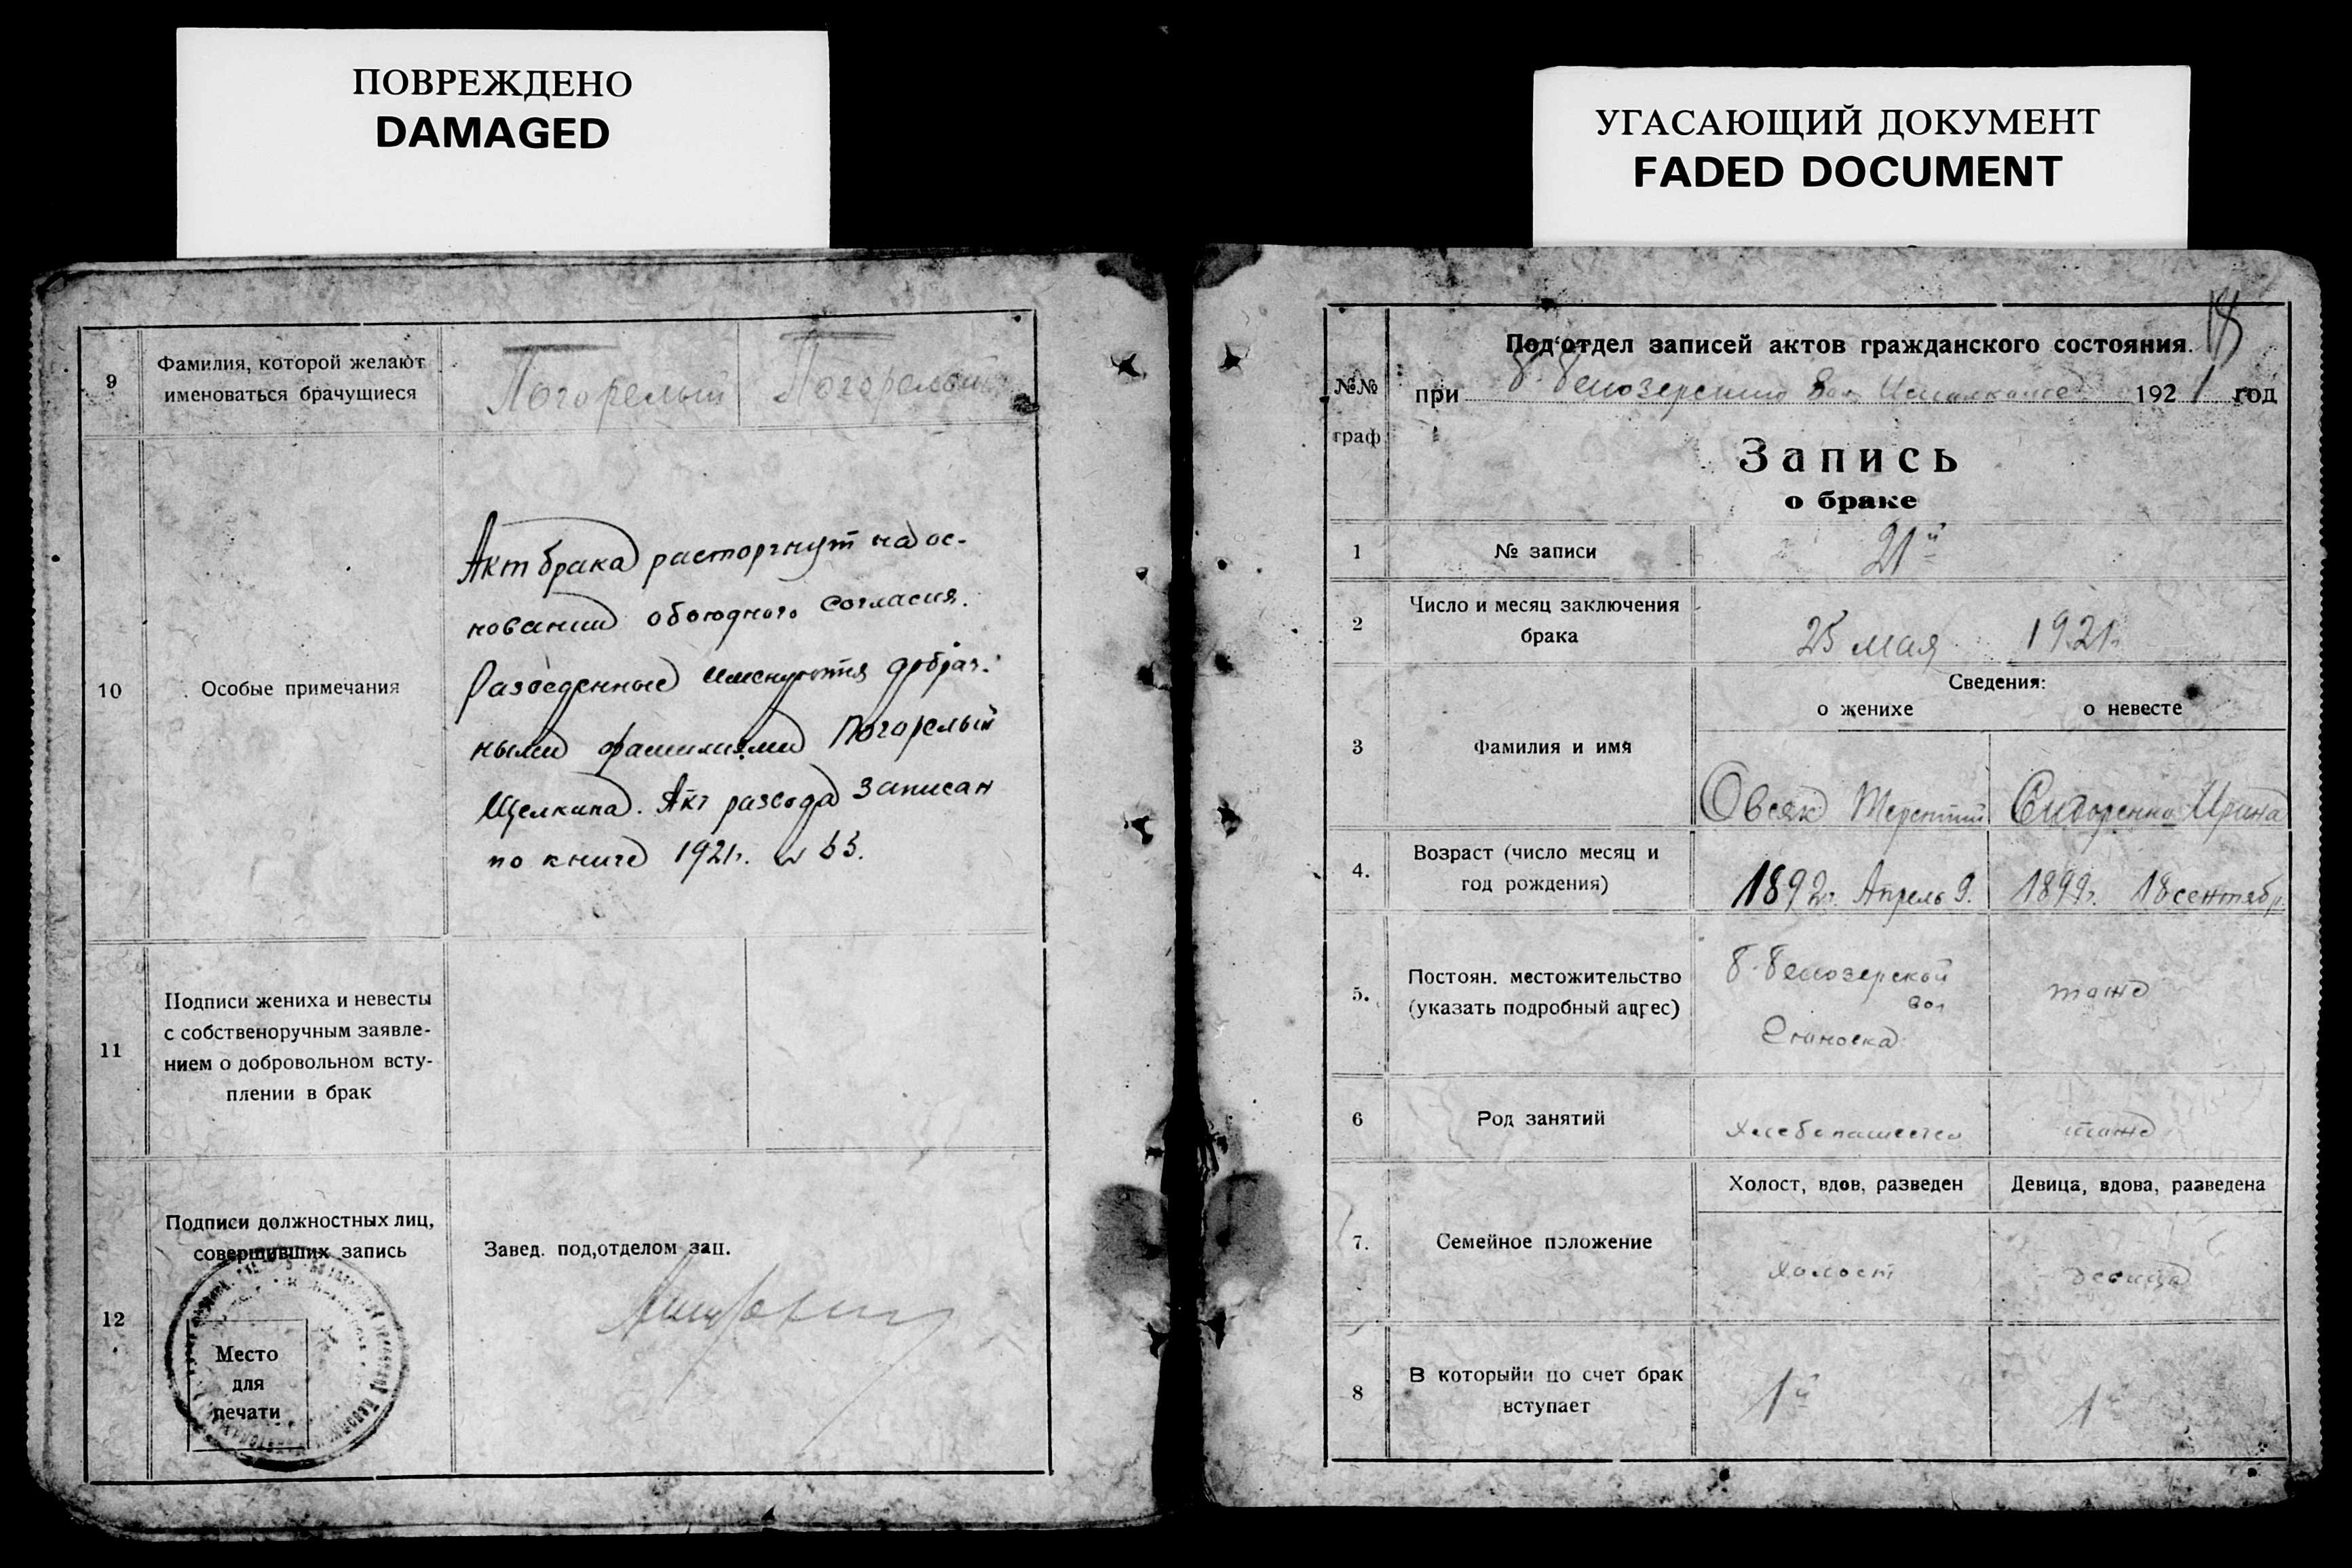 ПОВРЕЖДЕНО
DAMAGED
9
Фамилия, которой желают
именоваться брачущиеся
Погорелый
Погорелый
10
Особые примечания
Акт брака расторгнут на ос-
новании обоюдного согласия.
Разведенные именуются добрач-
ными фамилиями Погорелый
Щелкина. Акт развода записан
по книге 1921г.
11
Подписи жениха и невесты
с собственоручным заявле-
нием о добровольном всту-
плении в брак
12
Подписи должностных лиц,
совершивших запись
Место
для
печати
Завед. под,отделом зап.
УГАСАЮЩИЙ ДОКУМЕНТ
FADED DOCUMENT
18
№№
граф
Под'отдел записей актов гражданского состояния.
при Б. Белозерском Вол. Исполкоме 1921 год
Запись
о браке
1
№ записи
21й
2
Число и месяц заключения
брака
25 мая 1921г.
3
Фамилия и имя
Сведения:
о женихе
о невесте
Овсяк Терентий
Сидоренко Ирина
4.
Возраст (число месяц и
год рождения)
1892г. Апрель 9.
1899г. 18 сентябр.
5.
Постоян. местожительство
(указать подробный адрес)
Б. Белозерской
вол
тоже
6
Род занятий
хлебопашество
тоже
7.
Семейное положение
Холост, вдов, разведен
Девица, вдова, разведена
холост
девица
8
В которыйи по счет брак
вступает
1й
1й